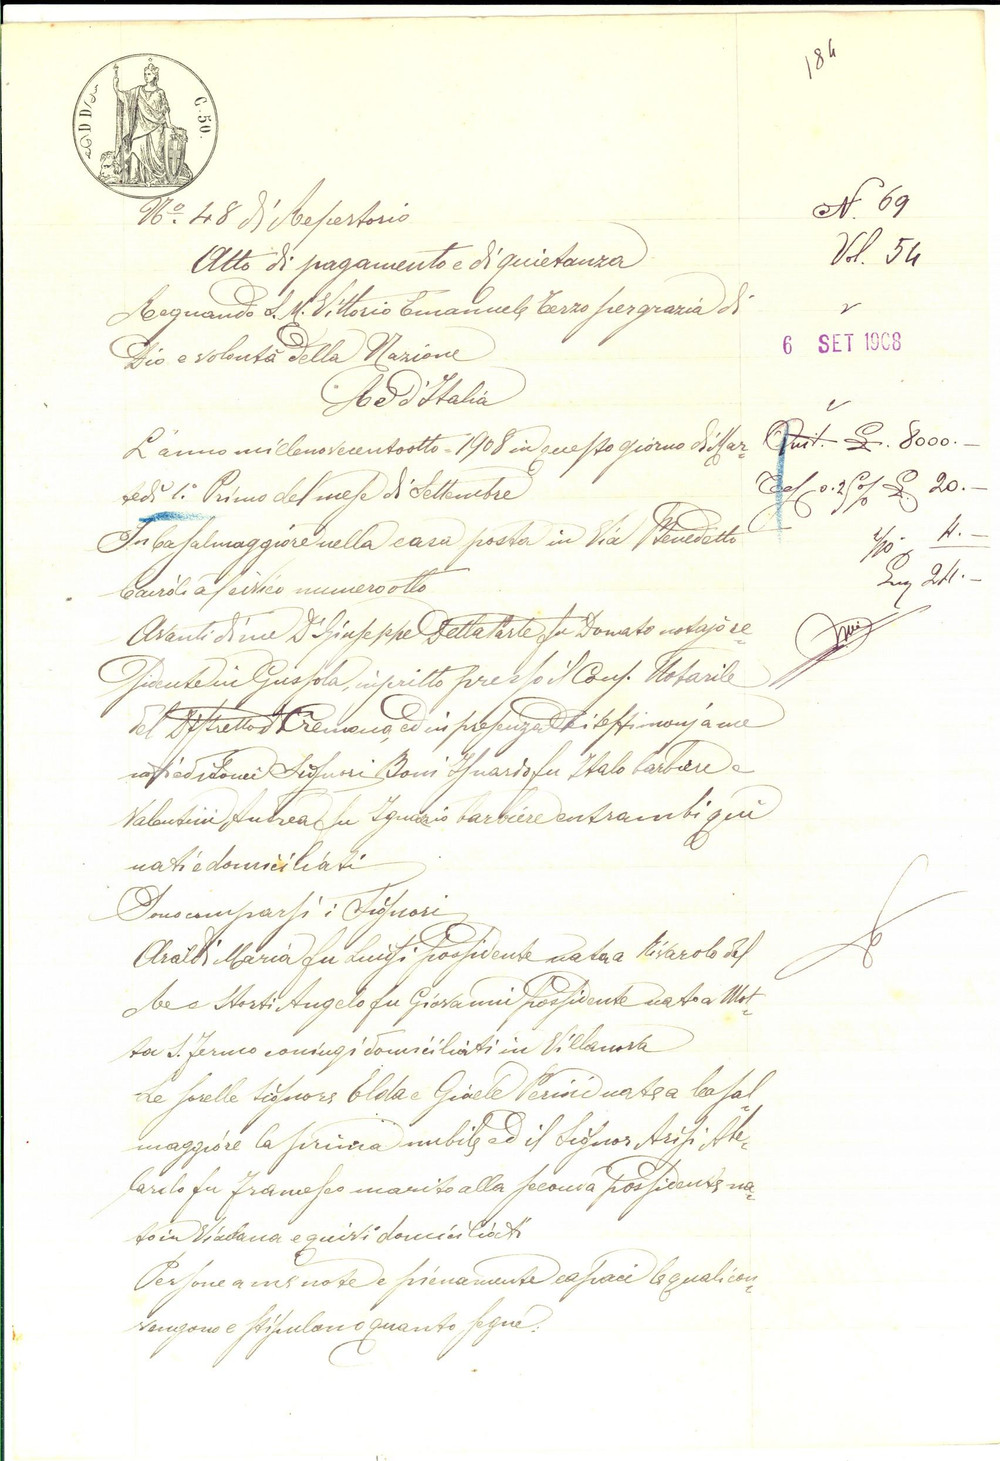 184
C. 50.
N.o 48 di Repertorio
N. 69
Atto di pagamento e di quietanza
Vol. 54
Regnando S. M. Vittorio Emanuele Terzo per grazia di
Dio e volontà della Nazione
6 SET 1908
Re d'Italia
L'anno millenovecentootto = 1908 in questo giorno di Mar=
Quit. £. 8000.-
tedì 1.° Primo del mese di Settembre
£ 20.-
In Casalmaggiore nella casa posta in Via Benedetto
4.-
Cairoli al civico numero otto
24.-
Avanti di me Dr Giuseppe Della Parte fu Donato notajo re=
sidente in Gussola, inscritto presso il Cons. Notarile
del Distretto di Cremona, ed in presenza dei testimonj a me
noti ed idonei Signori Boni Isnardo fu Italo barbiere e
Valentini Andrea fu Ignazio barbiere entrambi qui
nati e domiciliati
Sono comparsi i Signori
Araldi Maria fu Luigi possidente nata a Rivarolo del
Re e Storti Angelo fu Giovanni possidente nato a Mot=
ta S. Fermo coniugi domiciliati in Villanova
Le sorelle Signore Elda e Gioele Perini nate a Casal=
maggiore la prima nubile, ed il Signor Arisi Abe=
lardo fu Francesco marito alla seconda possidente, na=
to in Viadana e quivi domiciliati
Persone a me note e pienamente capaci le quali con=
vengono e stipulano quanto segue: